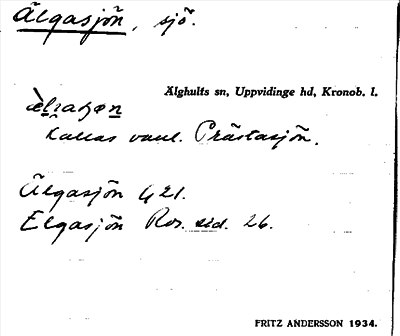 Älgasjön, sjö.
Älghults sn, Uppvidinge hd, Kronob. l.
Kallas vanl. Prästasjön.
Älgasjön G 21.
Elgasjön Ros. sid. 26.
FRITZ ANDERSSON 1934.